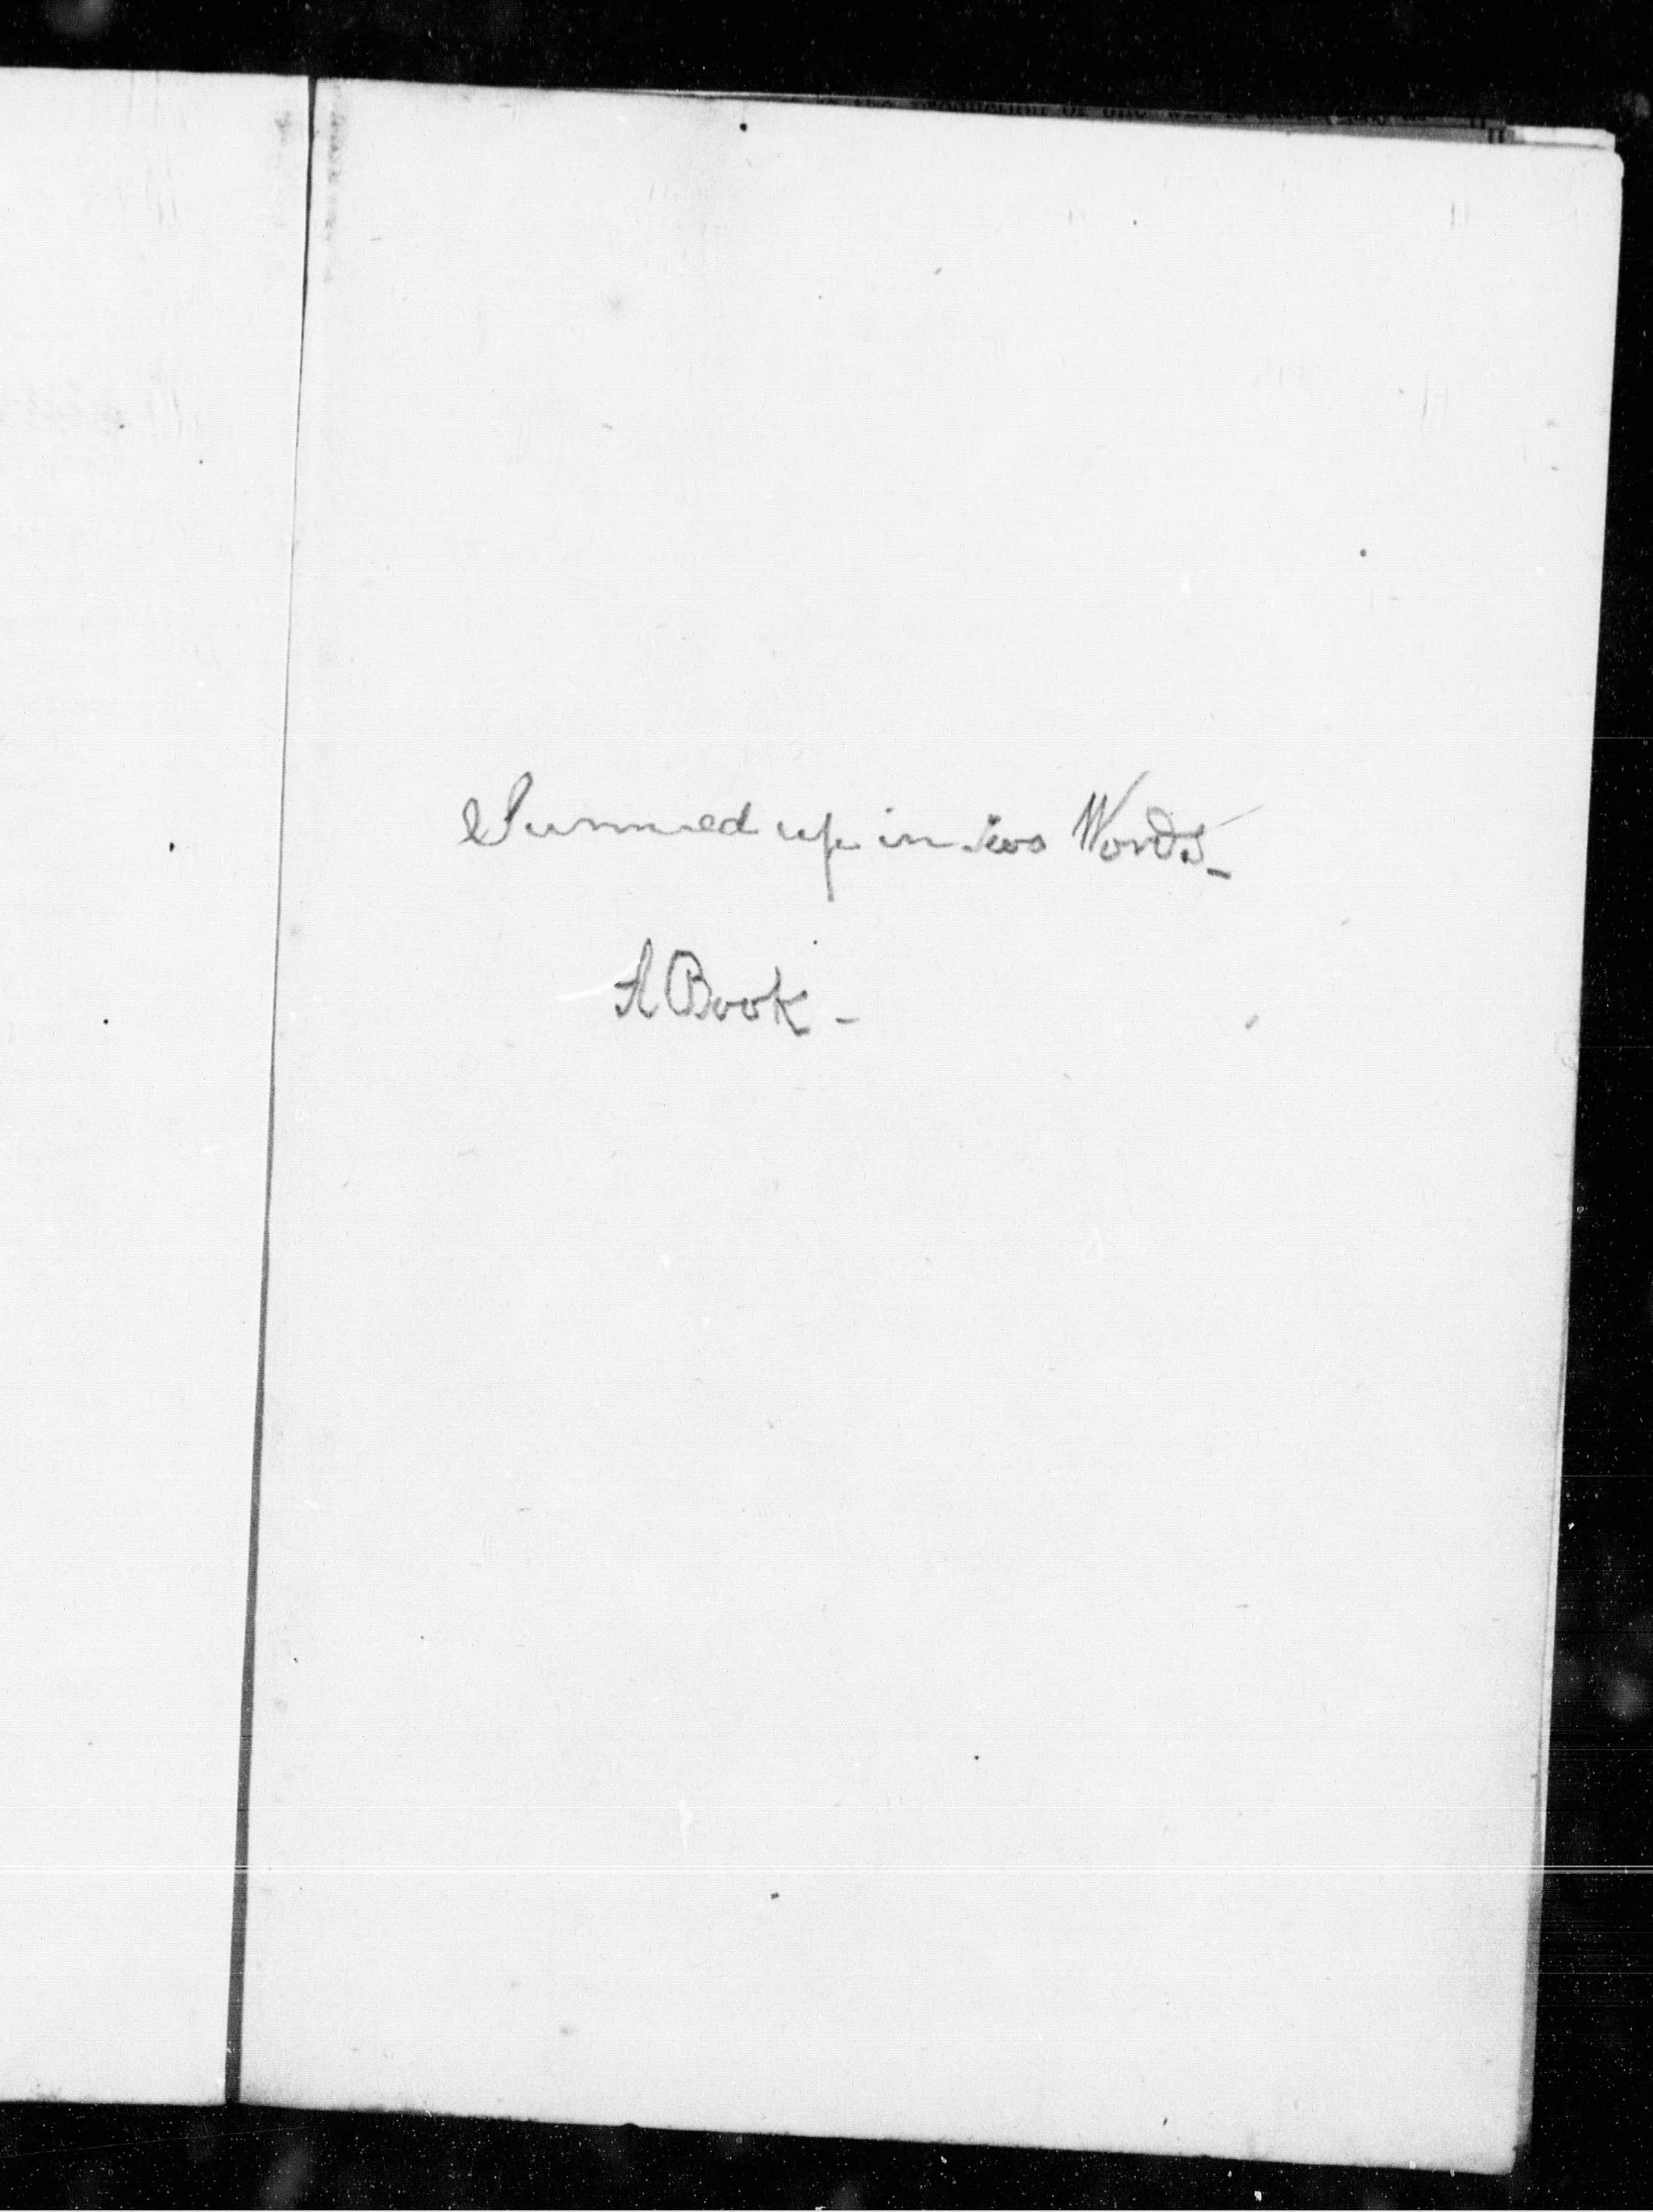 Summed up in two Words_
A Book -